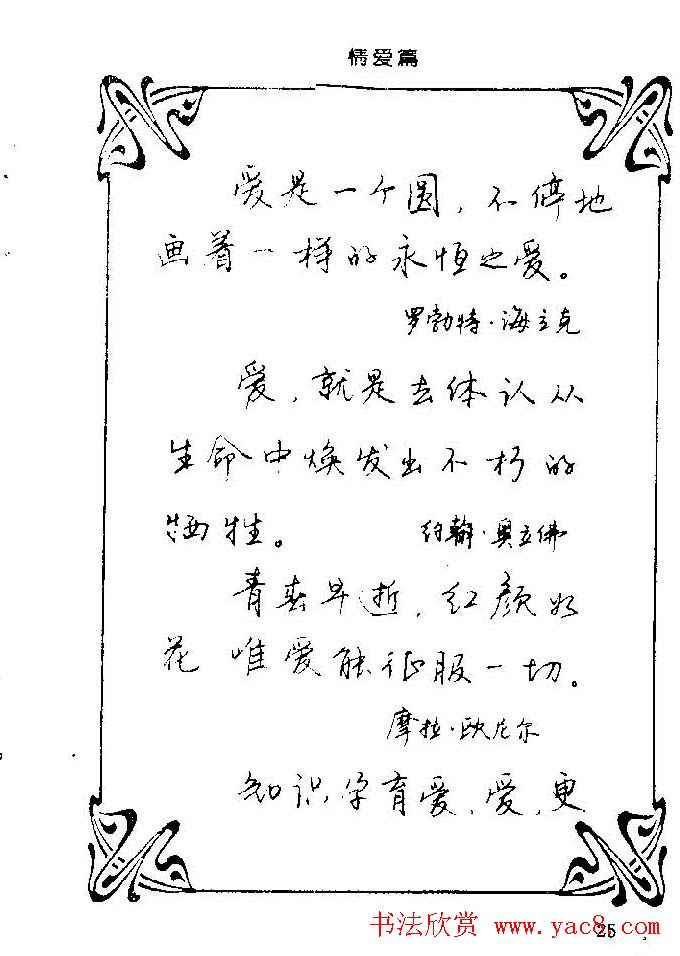 情爱篇
爱是一个圆，不停地
画着一样的永恒之爱。
罗勃特·海立克
爱，就是去体认从
生命中焕发出不朽的
牺牲。
约翰·奥立佛
青春早逝，红颜如
花 唯爱能征服一切。
摩拉·欧尼尔
知识孕育爱，爱，更
25
书法欣赏 www.yac8.com